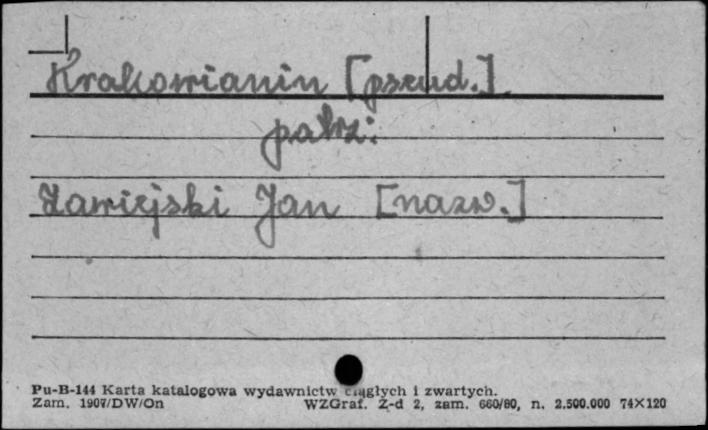 Krakowianin [pseud.]
patrz:
Zawiejski Jan [nazw.]
Pu-B-144 Karta katalogowa wydawnictw ciągłych i zwartych.
Zam. 1907/DW/On WZGraf. Z-d 2, zam. 660/80, n. 2.500.000 74×120